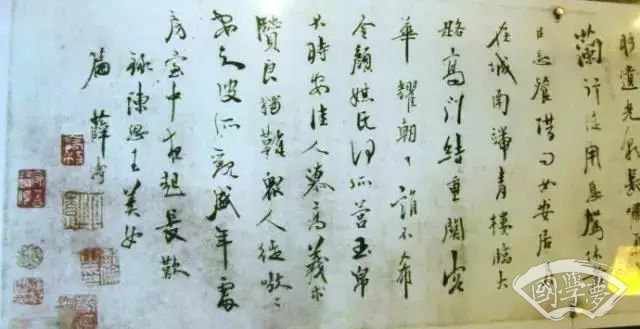 遺光彩長嘯
蘭行徒用息駕休
忘餐借問女安居
在城南端青樓臨大
路高門結重關容
華耀朝日誰不希
令顏媒氏何所營玉帛
不時安佳人慕高義求
賢良獨難眾人徒嗷々
安知彼所觀盛年處
房室中夜起長歎
錄陳思王美女
篇 薛
國學夢